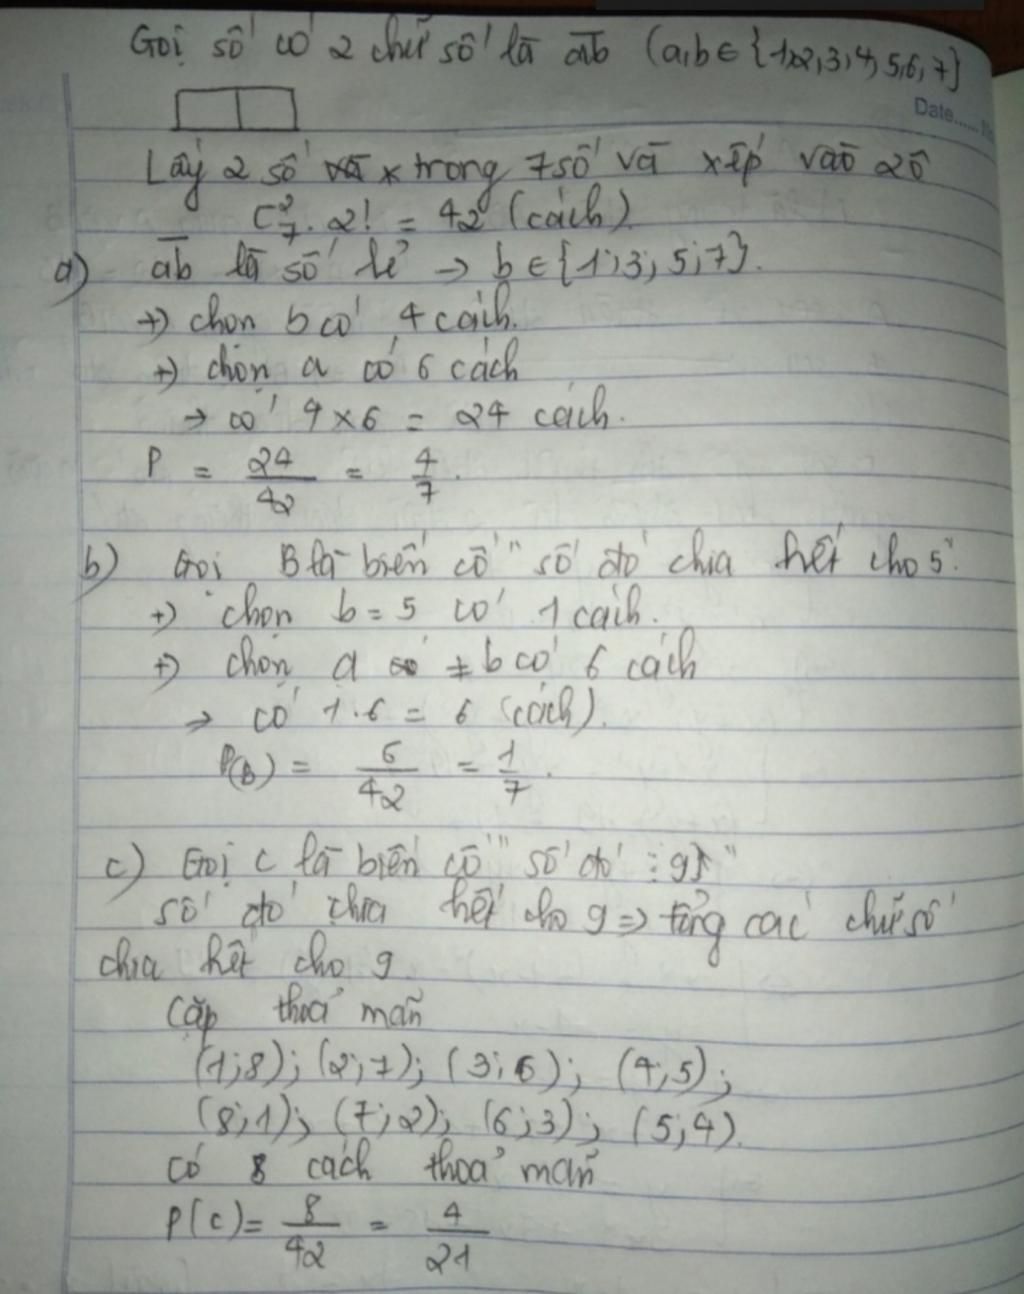 Gọi số có 2 chữ số là ab (a,b ∈ {1,2,3,4,5,6,7}
Date......
Lấy 2 số trong 7 số và xếp vào 2 ô
C²₇ . 2! = 42 (cách)
a) ab là số lẻ → b ∈ {1;3;5;7}.
+) chọn b có 4 cách.
+) chọn a có 6 cách
→ có 4 x 6 = 24 cách.
P = 24/42 = 4/7.
b) Gọi B là biến cố "số đó chia hết cho 5".
+) chọn b = 5 có 1 cách.
+) chọn a ≠ b có 6 cách
→ có 1.6 = 6 (cách).
P(B) = 6/42 = 1/7.
c) Gọi C là biến cố "số đó ⋮ 9"
số đó chia hết cho 9 => tổng các chữ số
chia hết cho 9
Cặp thoả mãn
(1;8); (2;7); (3;6); (4;5);
(8;1); (7;2); (6;3); (5;4).
có 8 cách thoả mãn
P(C) = 8/42 = 4/21